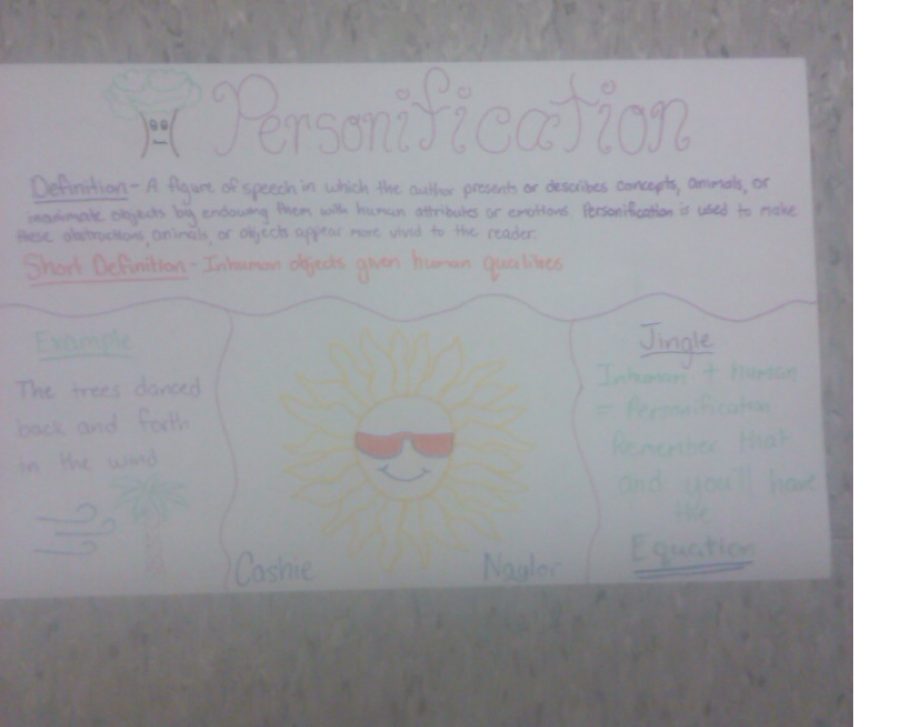 Personification
Definition - A figure of speech in which the author presents or describes concepts, animals, or
inanimate objects by endowing them with human attributes or emotions. Personification is used to make
these abstractions, animals, or objects appear more vivid to the reader.
Short Definition - Inhuman objects given human qualities
Example
The trees danced
back and forth
in the wind
Cashie Naylor
Jingle
Inhuman + human
= Personification
Remember that
and you'll have
the
Equation